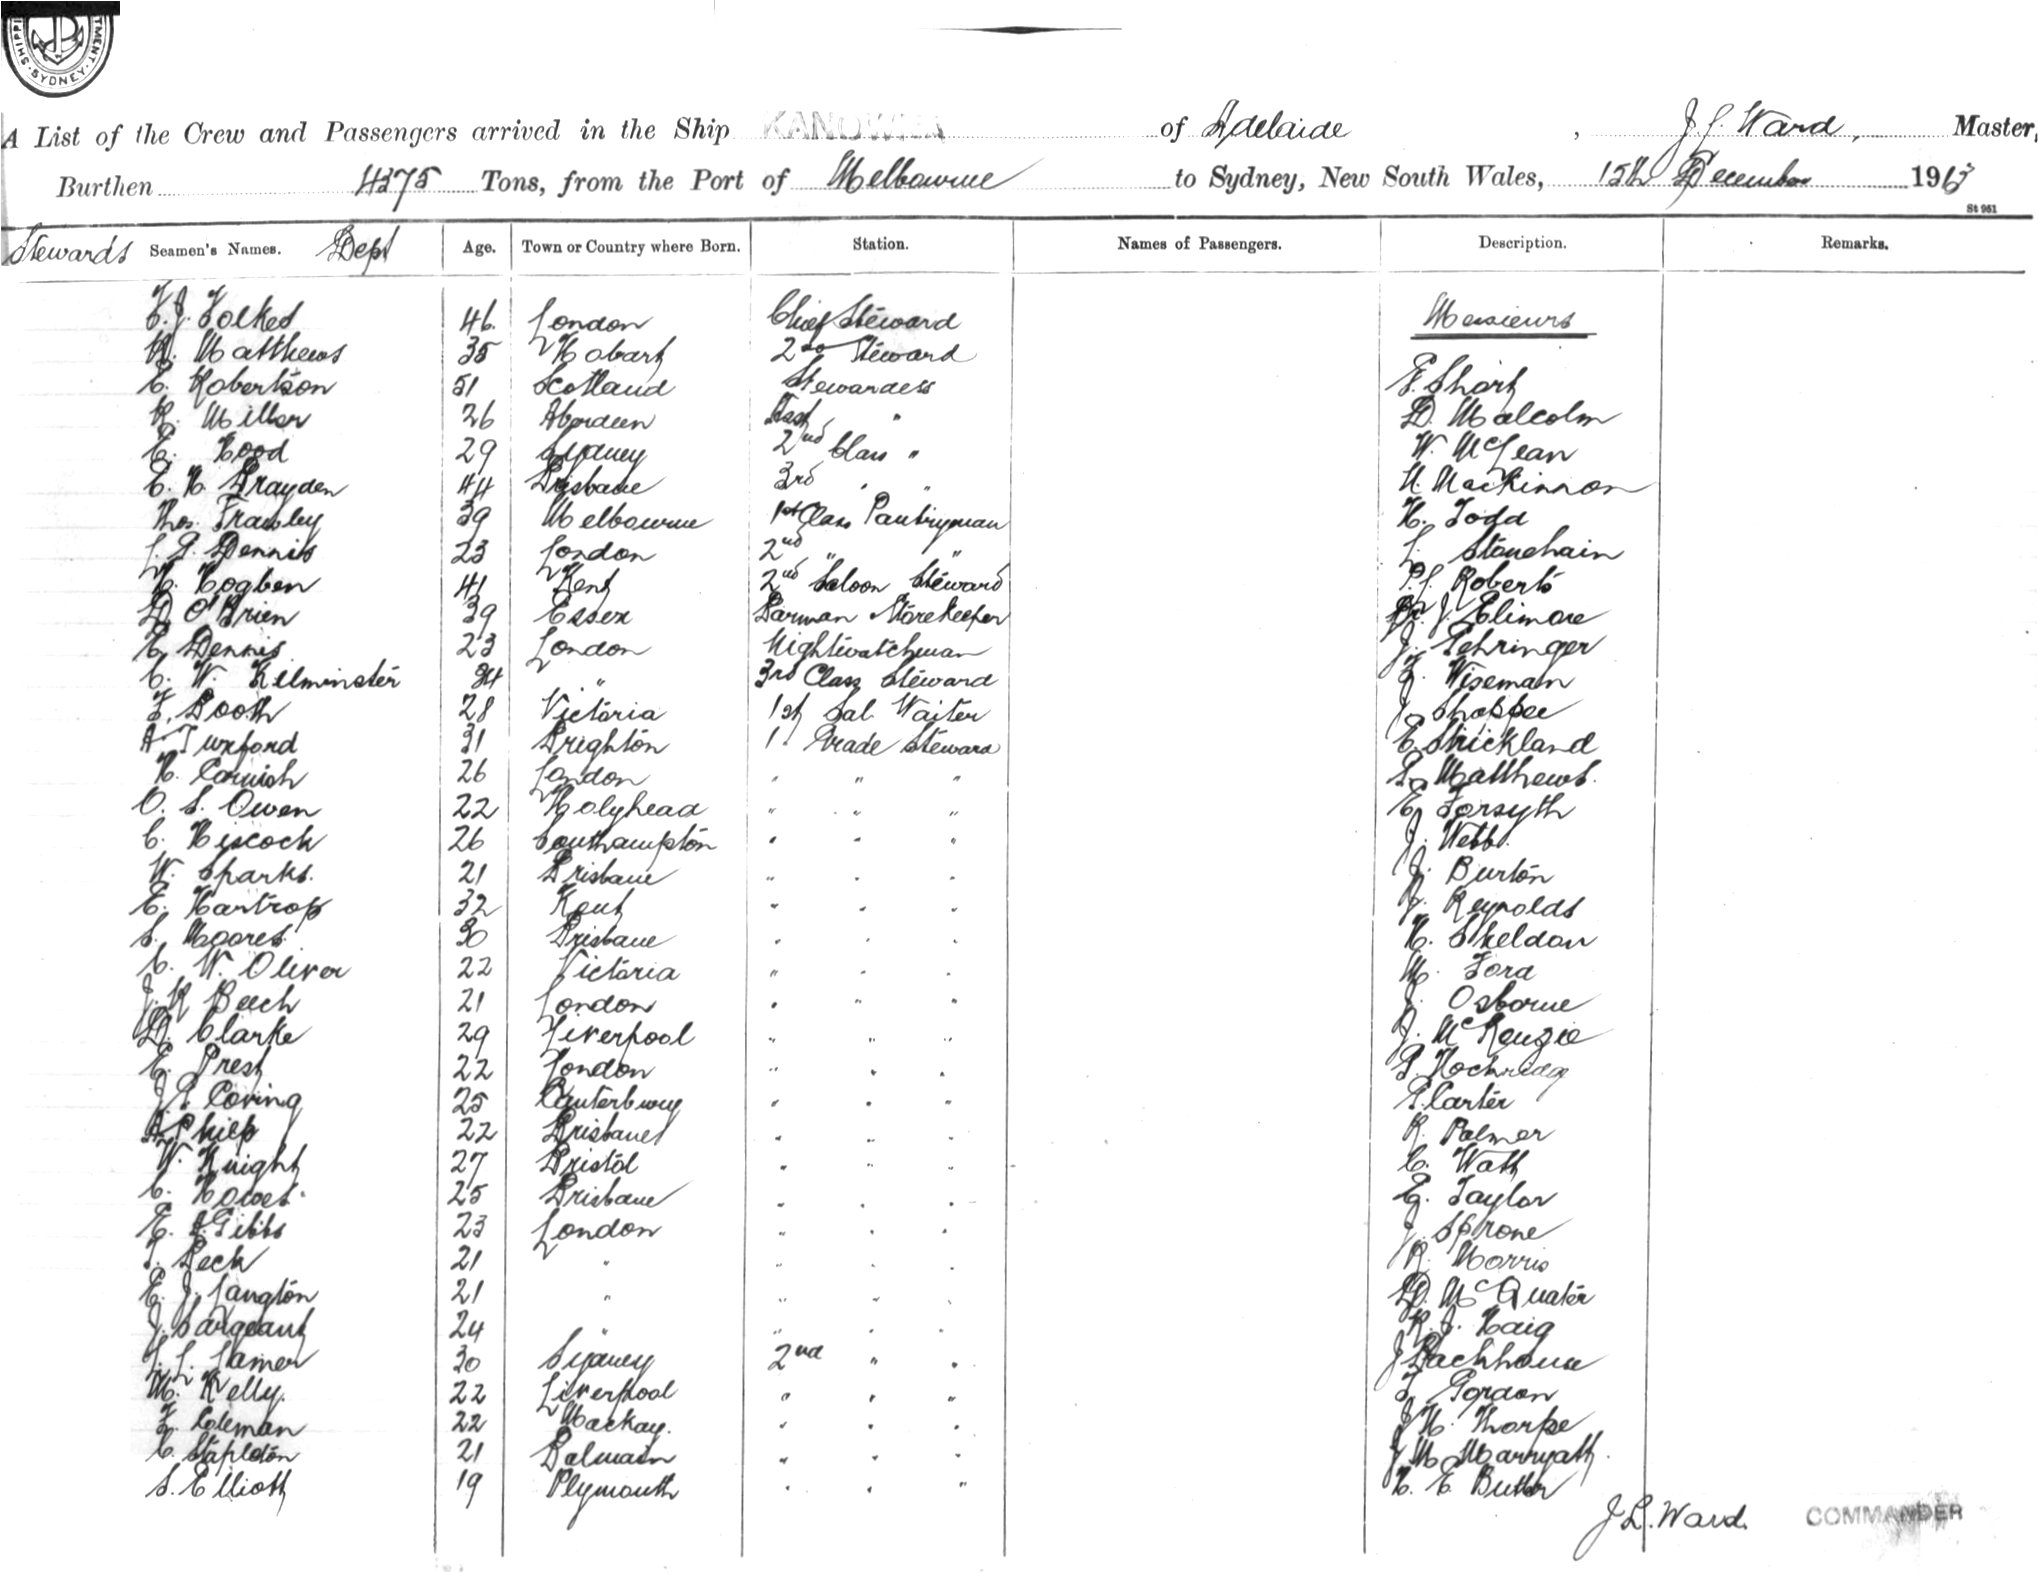 SYDNEY
A List of the Crew and Passengers arrived in the Ship KANOWNA of Adelaide, J. L. Ward, Master,
Burthen 4375 Tons, from the Port of Melbourne to Sydney, New South Wales, 15th December 1913
St 951
Stewards Seamen's Names. Dept Age. Town or Country where Born. Station. Names of Passengers. Description. Remarks.
F. J. Folkes 46. London Chief Steward Messieurs
H. Matthews 35 Hobart 2nd Steward
C. Robertson 51 Scotland Stewardess E. Short
R. Miller 26 Aberdeen Asst " D. Malcolm
E. Hood 29 Sydney 2nd Class " W. McLean
E. H. Drayden 44 Brisbane 3rd " " N. MacKinnon
Thos. Frawley 39 Melbourne 1st Class Pantryman H. Todd
L. G. Dennis 23 London 2nd " " L. Stanehain
C. Hogben 41 Kent 2nd Saloon Steward P. J. Roberts
D. O'Brien 39 Essex Barman Storekeeper J. Elimore
E. Dennis 23 London Nightwatchman J. Gehringer
C. W. Kilminster 34 " 3rd Class Steward F. Wiseman
F. Booth 28 Victoria 1st Sal. Waiter J. Shoppee
A. Tuxford 31 Brighton 1st Grade Steward E. Strickland
H. Cornish 26 London " " " S. Matthews.
O. S. Owen 22 Holyhead " " " E. Forsyth
C. Hiscock 26 Southampton " " " J. Webb.
W. Sparks. 21 Brisbane " " " J. Burton
E. Hartrop 32 Kent " " " J. Reynolds
S. Moores 30 Brisbane " " " H. Sheldon
C. W. Oliver 22 Victoria " " " M. Ford
J. R. Beech 21 London " " " J. Osborne
D. Clarke 29 Liverpool " " " J. McKenzie
E. Prest 22 London " " "
J. G. Coring 25 Canterbury " " " G. Carter
22 Brisbane " " " R. Palmer
W. Knight 27 Bristol " " " C. Watt
C. Howes. 25 Brisbane " " " G. Taylor
E. A. Gibbs 23 London " " " J. Sprone
T. Beck 21 " " " " R. Morris
E. J. Langton 21 " " " " D. McQuater
J. Sargeant 24 " " " " R. J. Haig
L. L. Lamer 30 Sydney 2nd " " J. Backhouse
M. Kelly. 22 Liverpool " " " F. Gordon
F. Coleman 22 Mackay. " " " J. H. Thorpe
C. Stapleton 21 Balmain " " " J. M. Marryatt.
S. Elliott 19 Plymouth " " " H. E. Butler
J. L. Ward. COMMANDER